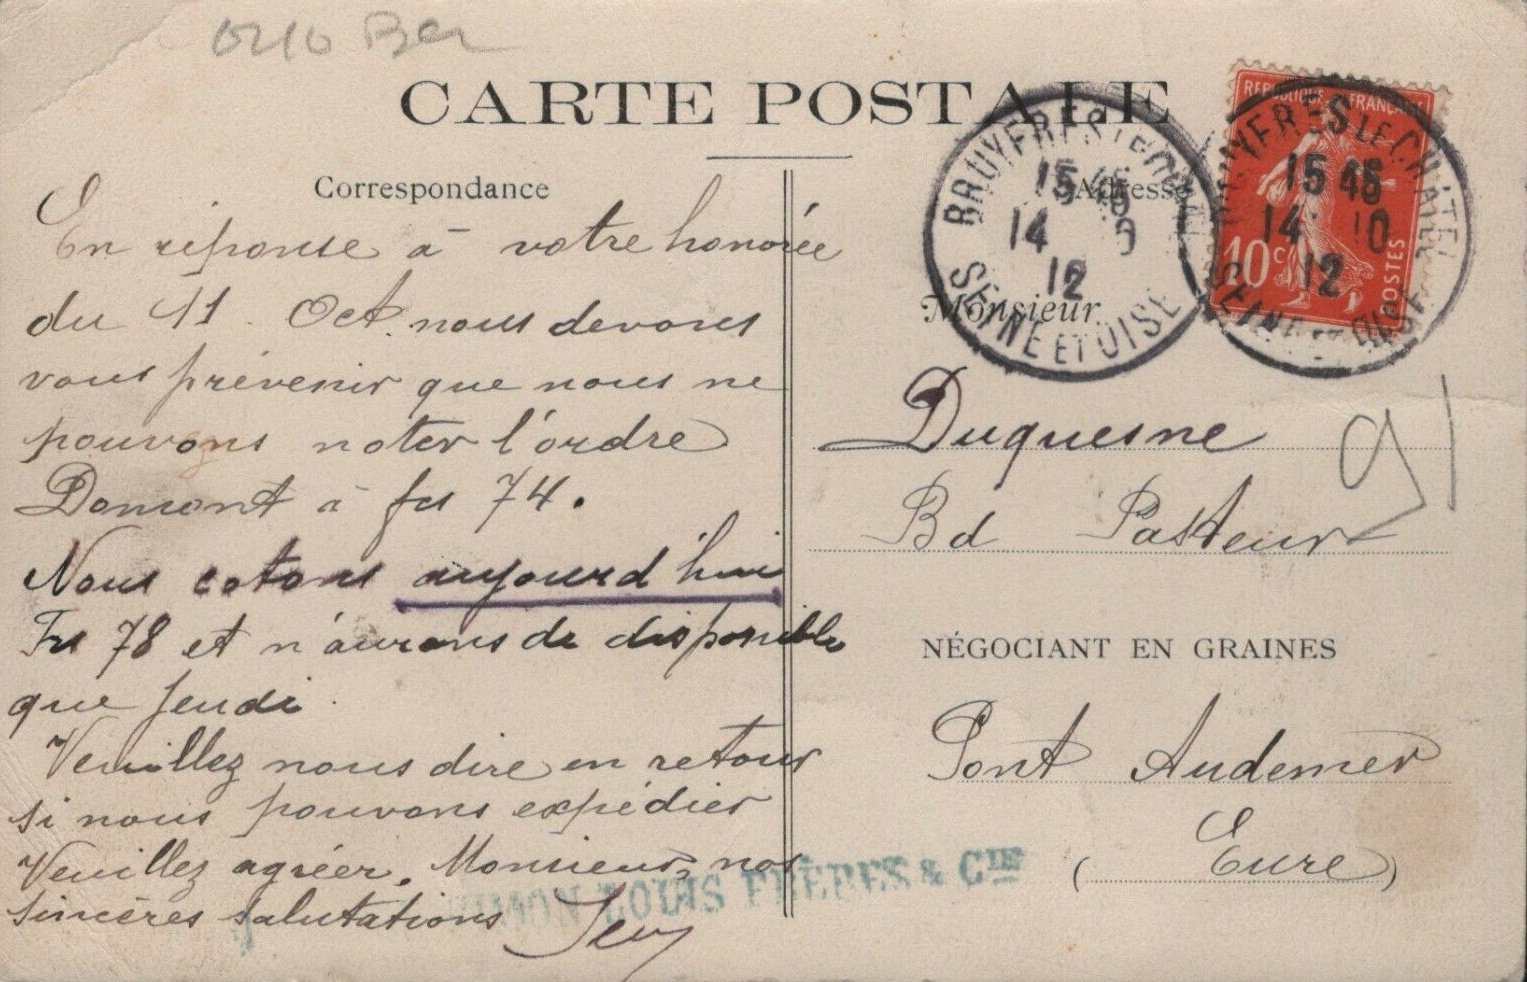 CARTE POSTALE
Correspondance
Adresse
En réponse à votre honorée
du 11 Oct. nous devons
vous prévenir que nous ne
pouvons noter l'ordre
Domont à frs 74.
Nous cotons aujourd'hui
Frs 78 et n'aurons de disponible
que Jeudi
Veuillez nous dire en retour
si nous pouvons expédier
Veuillez agréer, Monsieur, nos
sincères salutations
SIMON LOUIS FRÈRES & CIE
BRUYERES LE CHATEL
15 45
14 10
12
SEINE ET OISE
REPUBLIQUE FRANÇAISE
10 c
POSTES
BRUYERES LE CHATEL
15 45
14 10
12
SEINE ET OISE
Monsieur
Duquesne
Bd Pasteur
91
NÉGOCIANT EN GRAINES
Pont Audemer
(Eure)